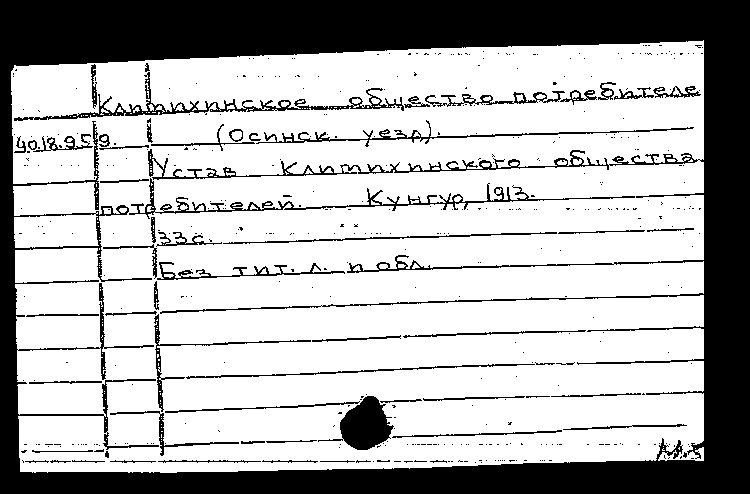 Клипихинское общество потребителе
40.18.959. (Осинск. уезд).
Устав Клипихинского общества
потребителей. Кунгур, 1913.
33с.
Без тит. л. и обл.